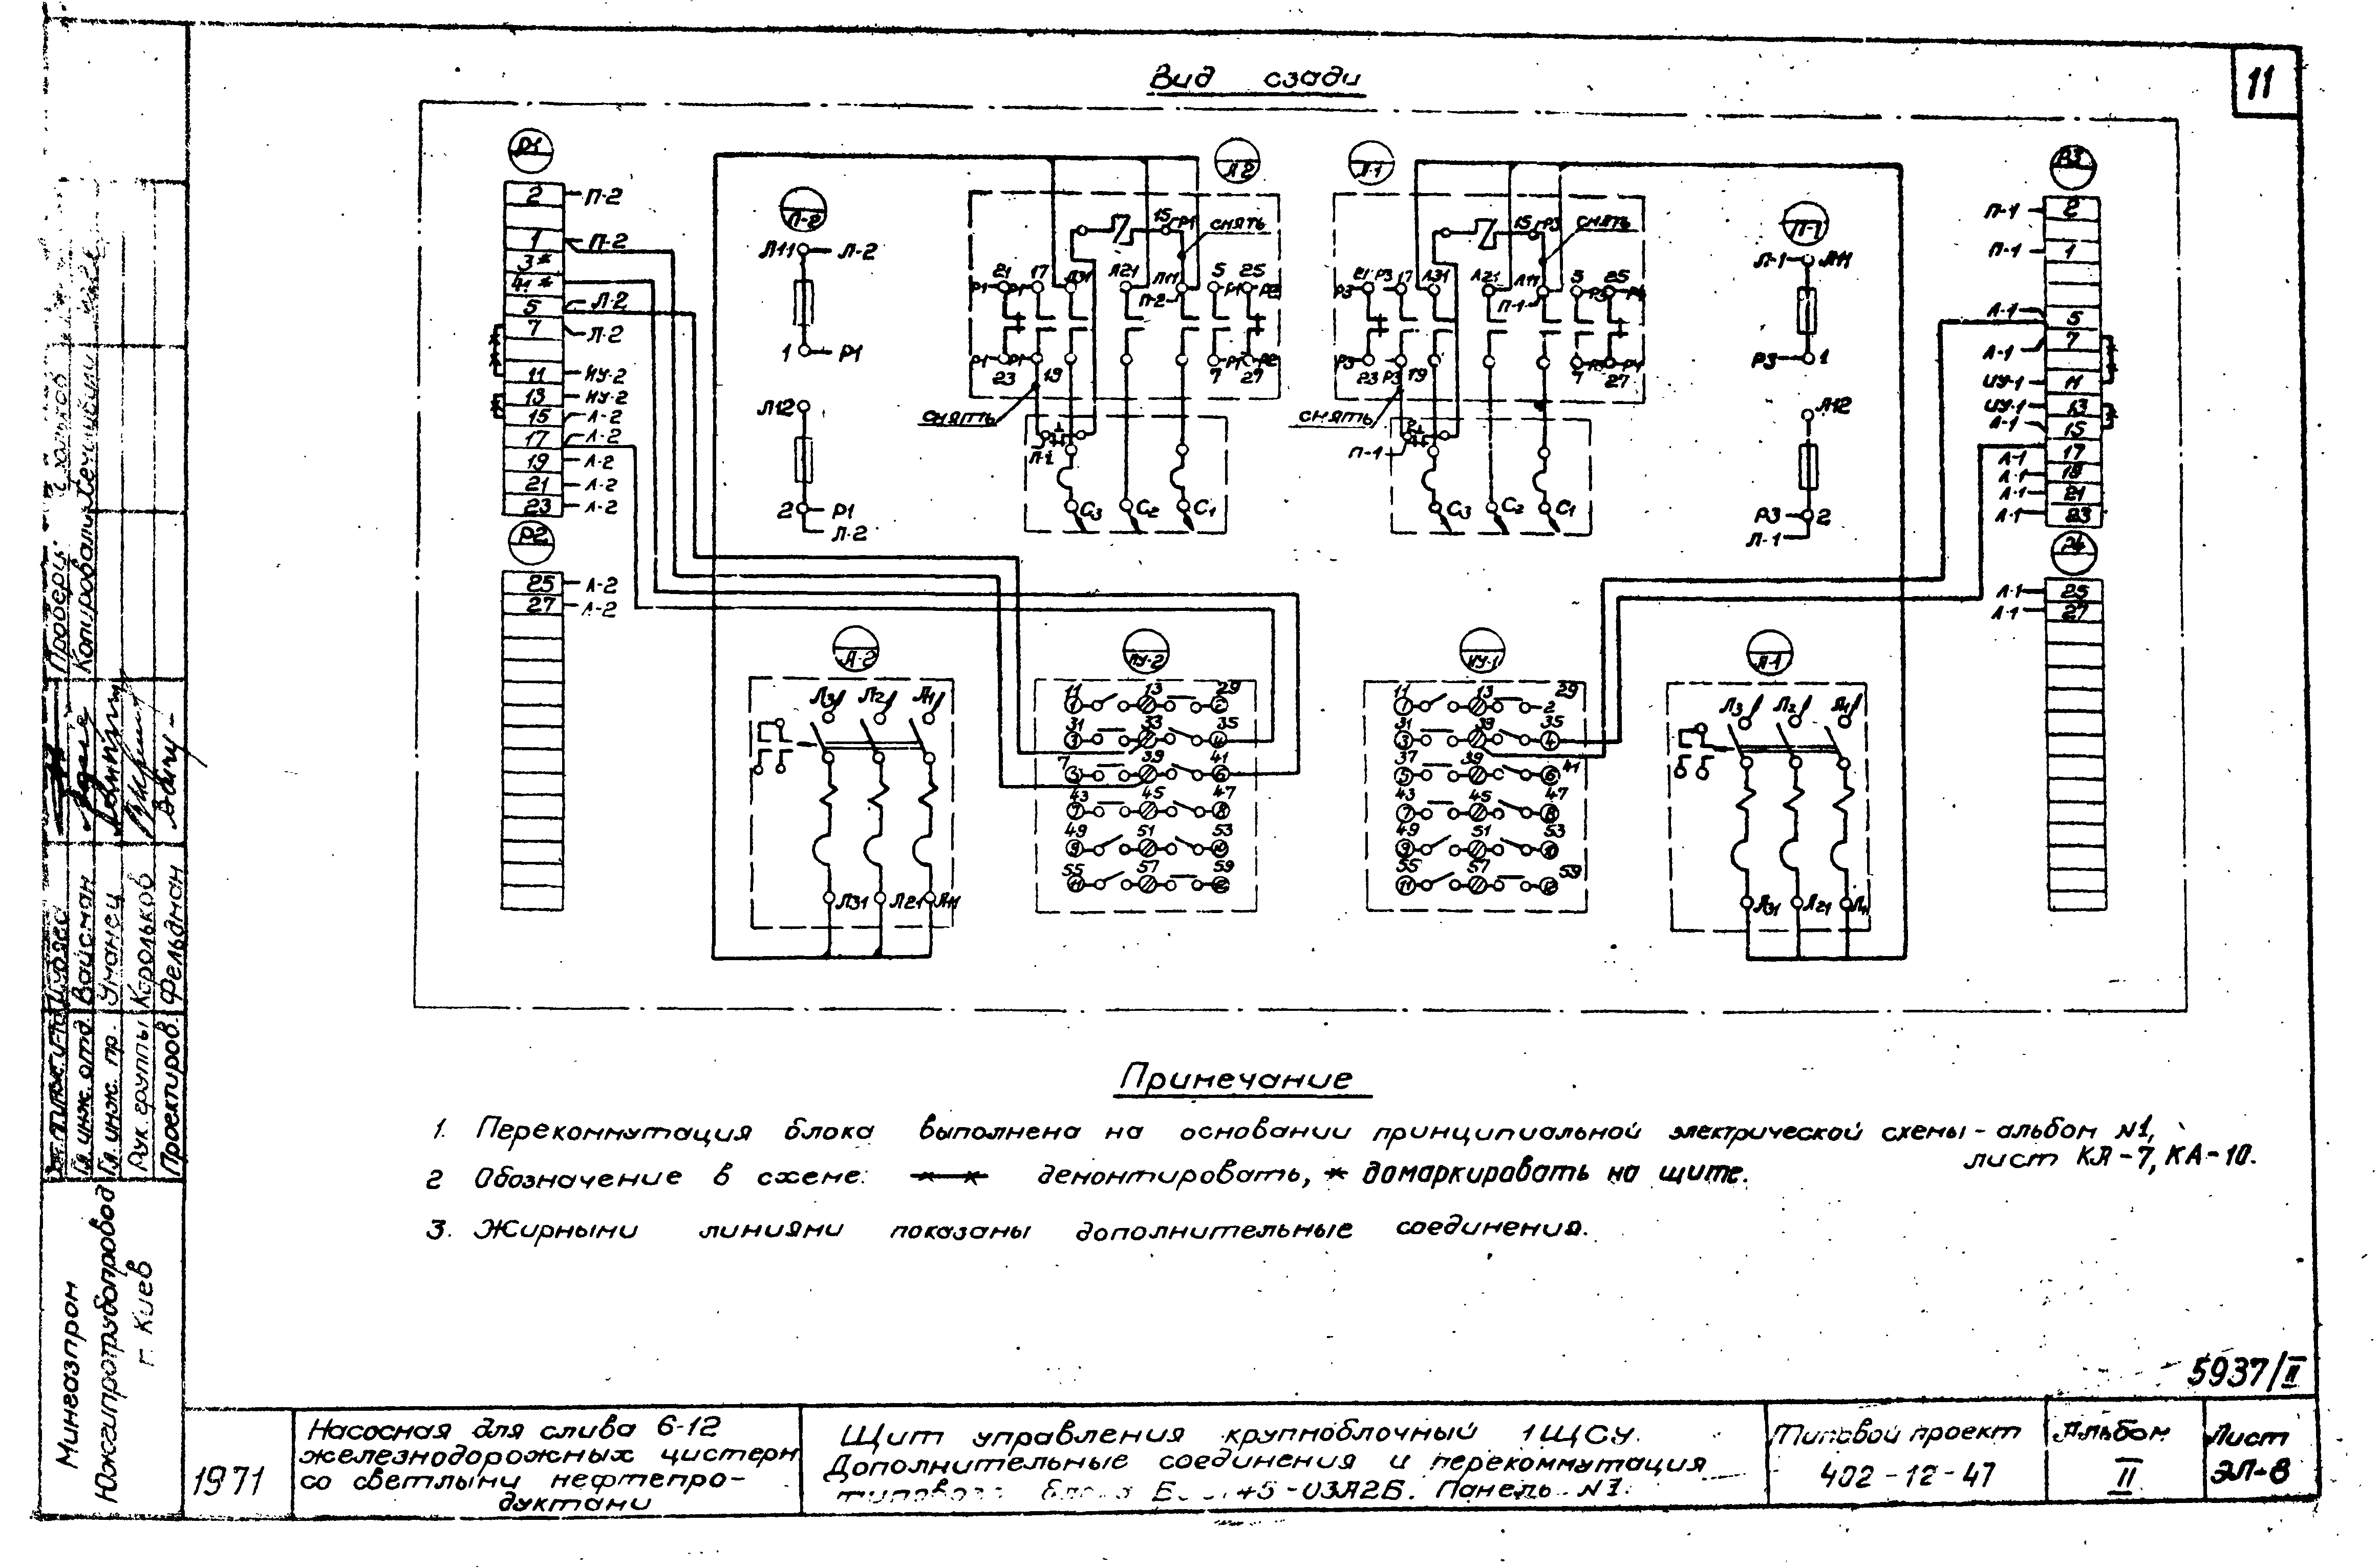 11
Вид сзади
Р1
2 П-2
1 П-2
3*
41*
5 Л-2
7 Л-2
11 ИУ-2
13 ИУ-2
15 Л-2
17 Л-2
19 Л-2
21 Л-2
23 Л-2
Р2
25 Л-2
27 Л-2
П-2
Л11 Л-2
1 Р1
Л12
2 Р1
Л-2
Л-2
15 Р1 снять
21 17 Л31 Л21 Л11 5 25
Р1 Р1 П-2 Р1 Р2
Р1 Р1 Р1 Р2
23 19 7 27
снять
П-2
С3 С2 С1
Л-1
15 Р3 снять
21 Р3 17 Л31 Л21 Л11 5 25
Р3 П-1 Р3 Р4
Р3 Р3 Р4
23 Р3 19 7 27
снять
П-1
С3 С2 С1
П-1
Л-1 Л11
Р3 1
Л12
Р3 2
Л-1
Р3
П-1 2
П-1 1
Л-1 5
Л-1 7
ИУ-1 11
ИУ-1 13
Л-1 15
Л-1 17
Л-1 19
Л-1 21
Л-1 23
Р4
Л-1 25
Л-1 27
А-2
Л3 Л2 Л1
Л31 Л21 Л11
ПУ-2
11 13 29
1 2
31 33 35
3 4
7 39 41
5 6
43 45 47
7 8
49 51 53
9 10
55 57 59
11 12
ИУ-1
11 13 29
1 2
31 39 35
3 4
37 39 41
5 6
43 45 47
7 8
49 51 53
9 10
55 57 59
11 12
А-1
Л3 Л2 Л1
Л31 Л21 Л11
Примечание
1. Перекоммутация блока выполнена на основании принципиальной электрической схемы - альбом №1,
лист КА-7, КА-10.
2 Обозначение в схеме: демонтировать, * домаркировать на щите.
3. Жирными линиями показаны дополнительные соединения.
5937/II
1971
Насосная для слива 6-12
железнодорожных цистерн
со светлыми нефтепро-
дуктами
Щит управления крупноблочный 1ЩСУ.
Дополнительные соединения и перекоммутация
типового блока Б -03А2Б. Панель №1.
Типовой проект
402-12-47
Альбом
II
Лист
ЭЛ-8
Мингазпром
Южгипротрубопровод
г. Киев
Гл. инж. отд. Вайсман
Гл. инж. пр. Уманец
Рук. группы Корольков
Проектиров. Фельдман
Проверил
Копировали